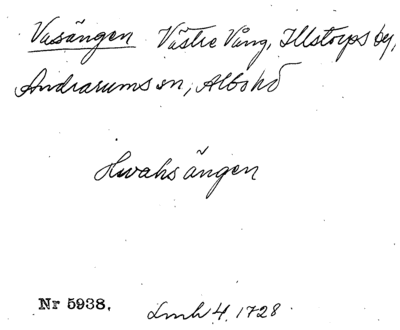 Vasängen Västre Vång, Illstorps by,
Andrarums sn, Albo hd
Hwahsängen
Nr 5938. Lmh 4. 1728.